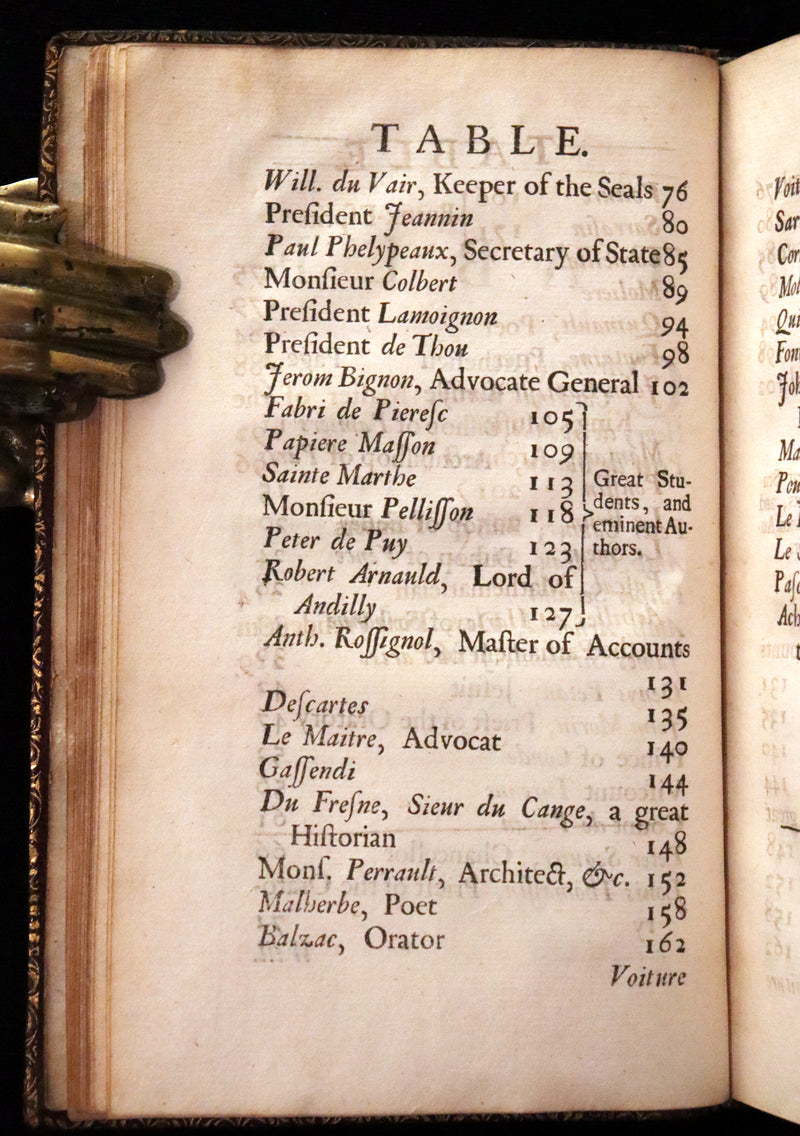 TABLE.
Will. du Vair, Keeper of the Seals 76
Preſident Jeannin 80
Paul Phelypeaux, Secretary of State 85
Monſieur Colbert 89
Preſident Lamoignon 94
Preſident de Thou 98
Jerom Bignon, Advocate General 102
Fabri de Piereſc 105
Papiere Maſſon 109
Sainte Marthe 113
Monſieur Pelliſſon 118
Peter de Puy 123
Robert Arnauld, Lord of
Andilly 127
Great Stu-
dents, and
eminent Au-
thors.
Anth. Roſſignol, Maſter of Accounts
131
Deſcartes 135
Le Maitre, Advocat 140
Gaſſendi 144
Du Freſne, Sieur du Cange, a great
Hiſtorian 148
Monſ. Perrault, Architect, &c. 152
Malherbe, Poet 158
Balzac, Orator 162
Voiture